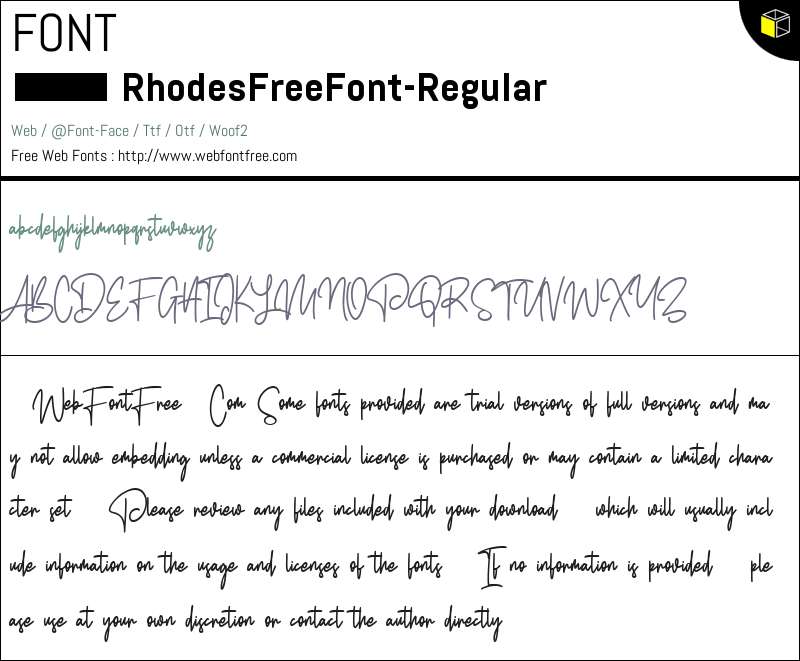 FONT
RhodesFreeFont-Regular
Web / @Font-Face / Ttf / Otf / Woof2
Free Web Fonts : http://www.webfontfree.com
abcdefghijklmnopqrstuvwxyz
ABCDEFGHIJKLMNOPQRSTUVWXYZ
WebFontFree Com Some fonts provided are trial versions of full versions and ma
y not allow embedding unless a commercial license is purchased or may contain a limited chara
cter set Please review any files included with your download which will usually incl
ude information on the usage and licenses of the fonts If no information is provided ple
ase use at your own discretion or contact the author directly